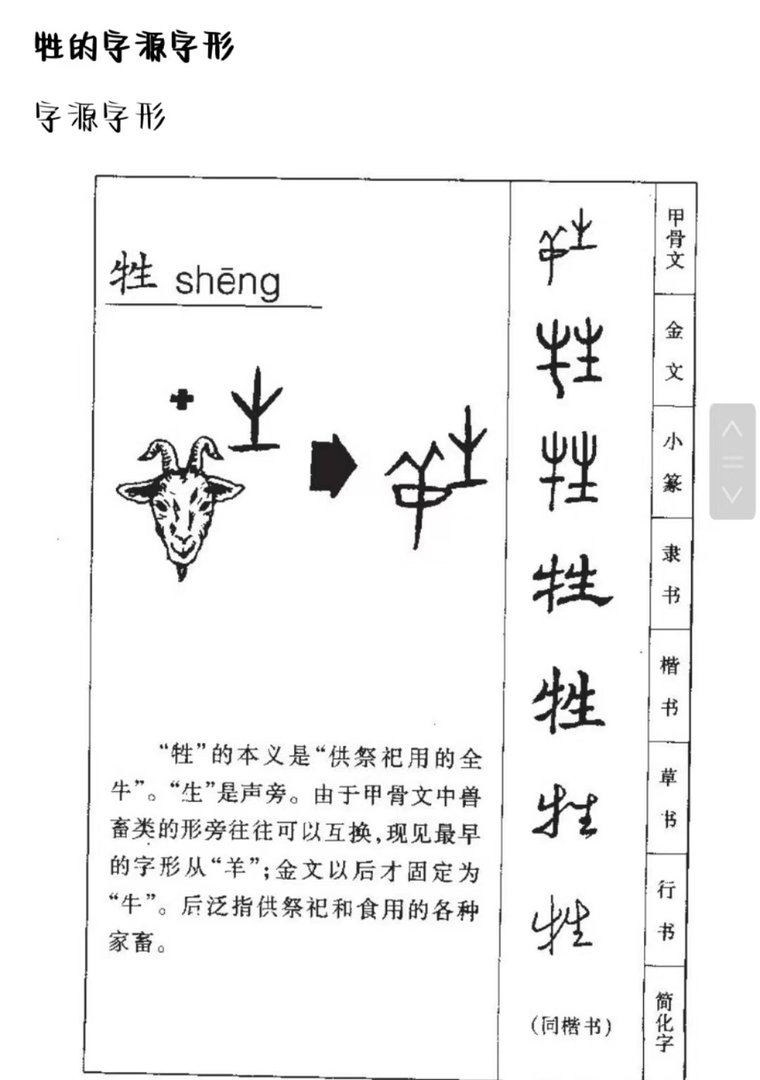 牲的字源字形
字源字形
牲 shēng
“牲”的本义是“供祭祀用的全
牛”。“生”是声旁。由于甲骨文中兽
畜类的形旁往往可以互换,现见最早
的字形从“羊”;金文以后才固定为
“牛”。后泛指供祭祀和食用的各种
家畜。
甲骨文
金文
小篆
牲
隶书
牲
楷书
牲
草书
牲
行书
(同楷书)
简化字